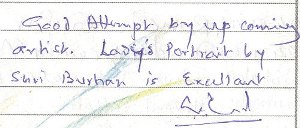 Good Attempt by up coming
artist. Lady's Portrait by
Shri Burhan is Excellant